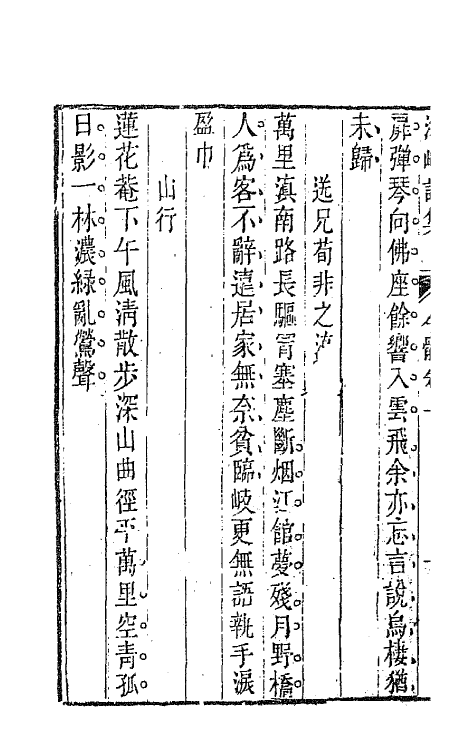 扉彈琴向佛座餘響入雲飛余亦忘言說鳥棲猶
未歸
送兄荀非之
萬里滇南路長驅冐塞塵斷烟江館夢殘月野橋
人爲客不辭遠居家無奈貧臨岐更無語執手淚
盈巾
山行
蓮花菴下午風清散步深山曲徑平萬里空青孤
日影一林濃綠亂鶯聲